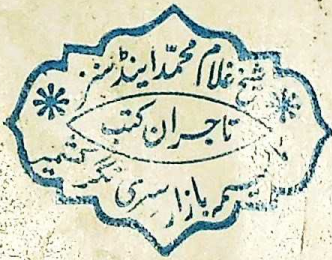 شیخ غلام محمدؐ اینڈ سنز
تاجران کتب
بازار سری نگر کشمیر